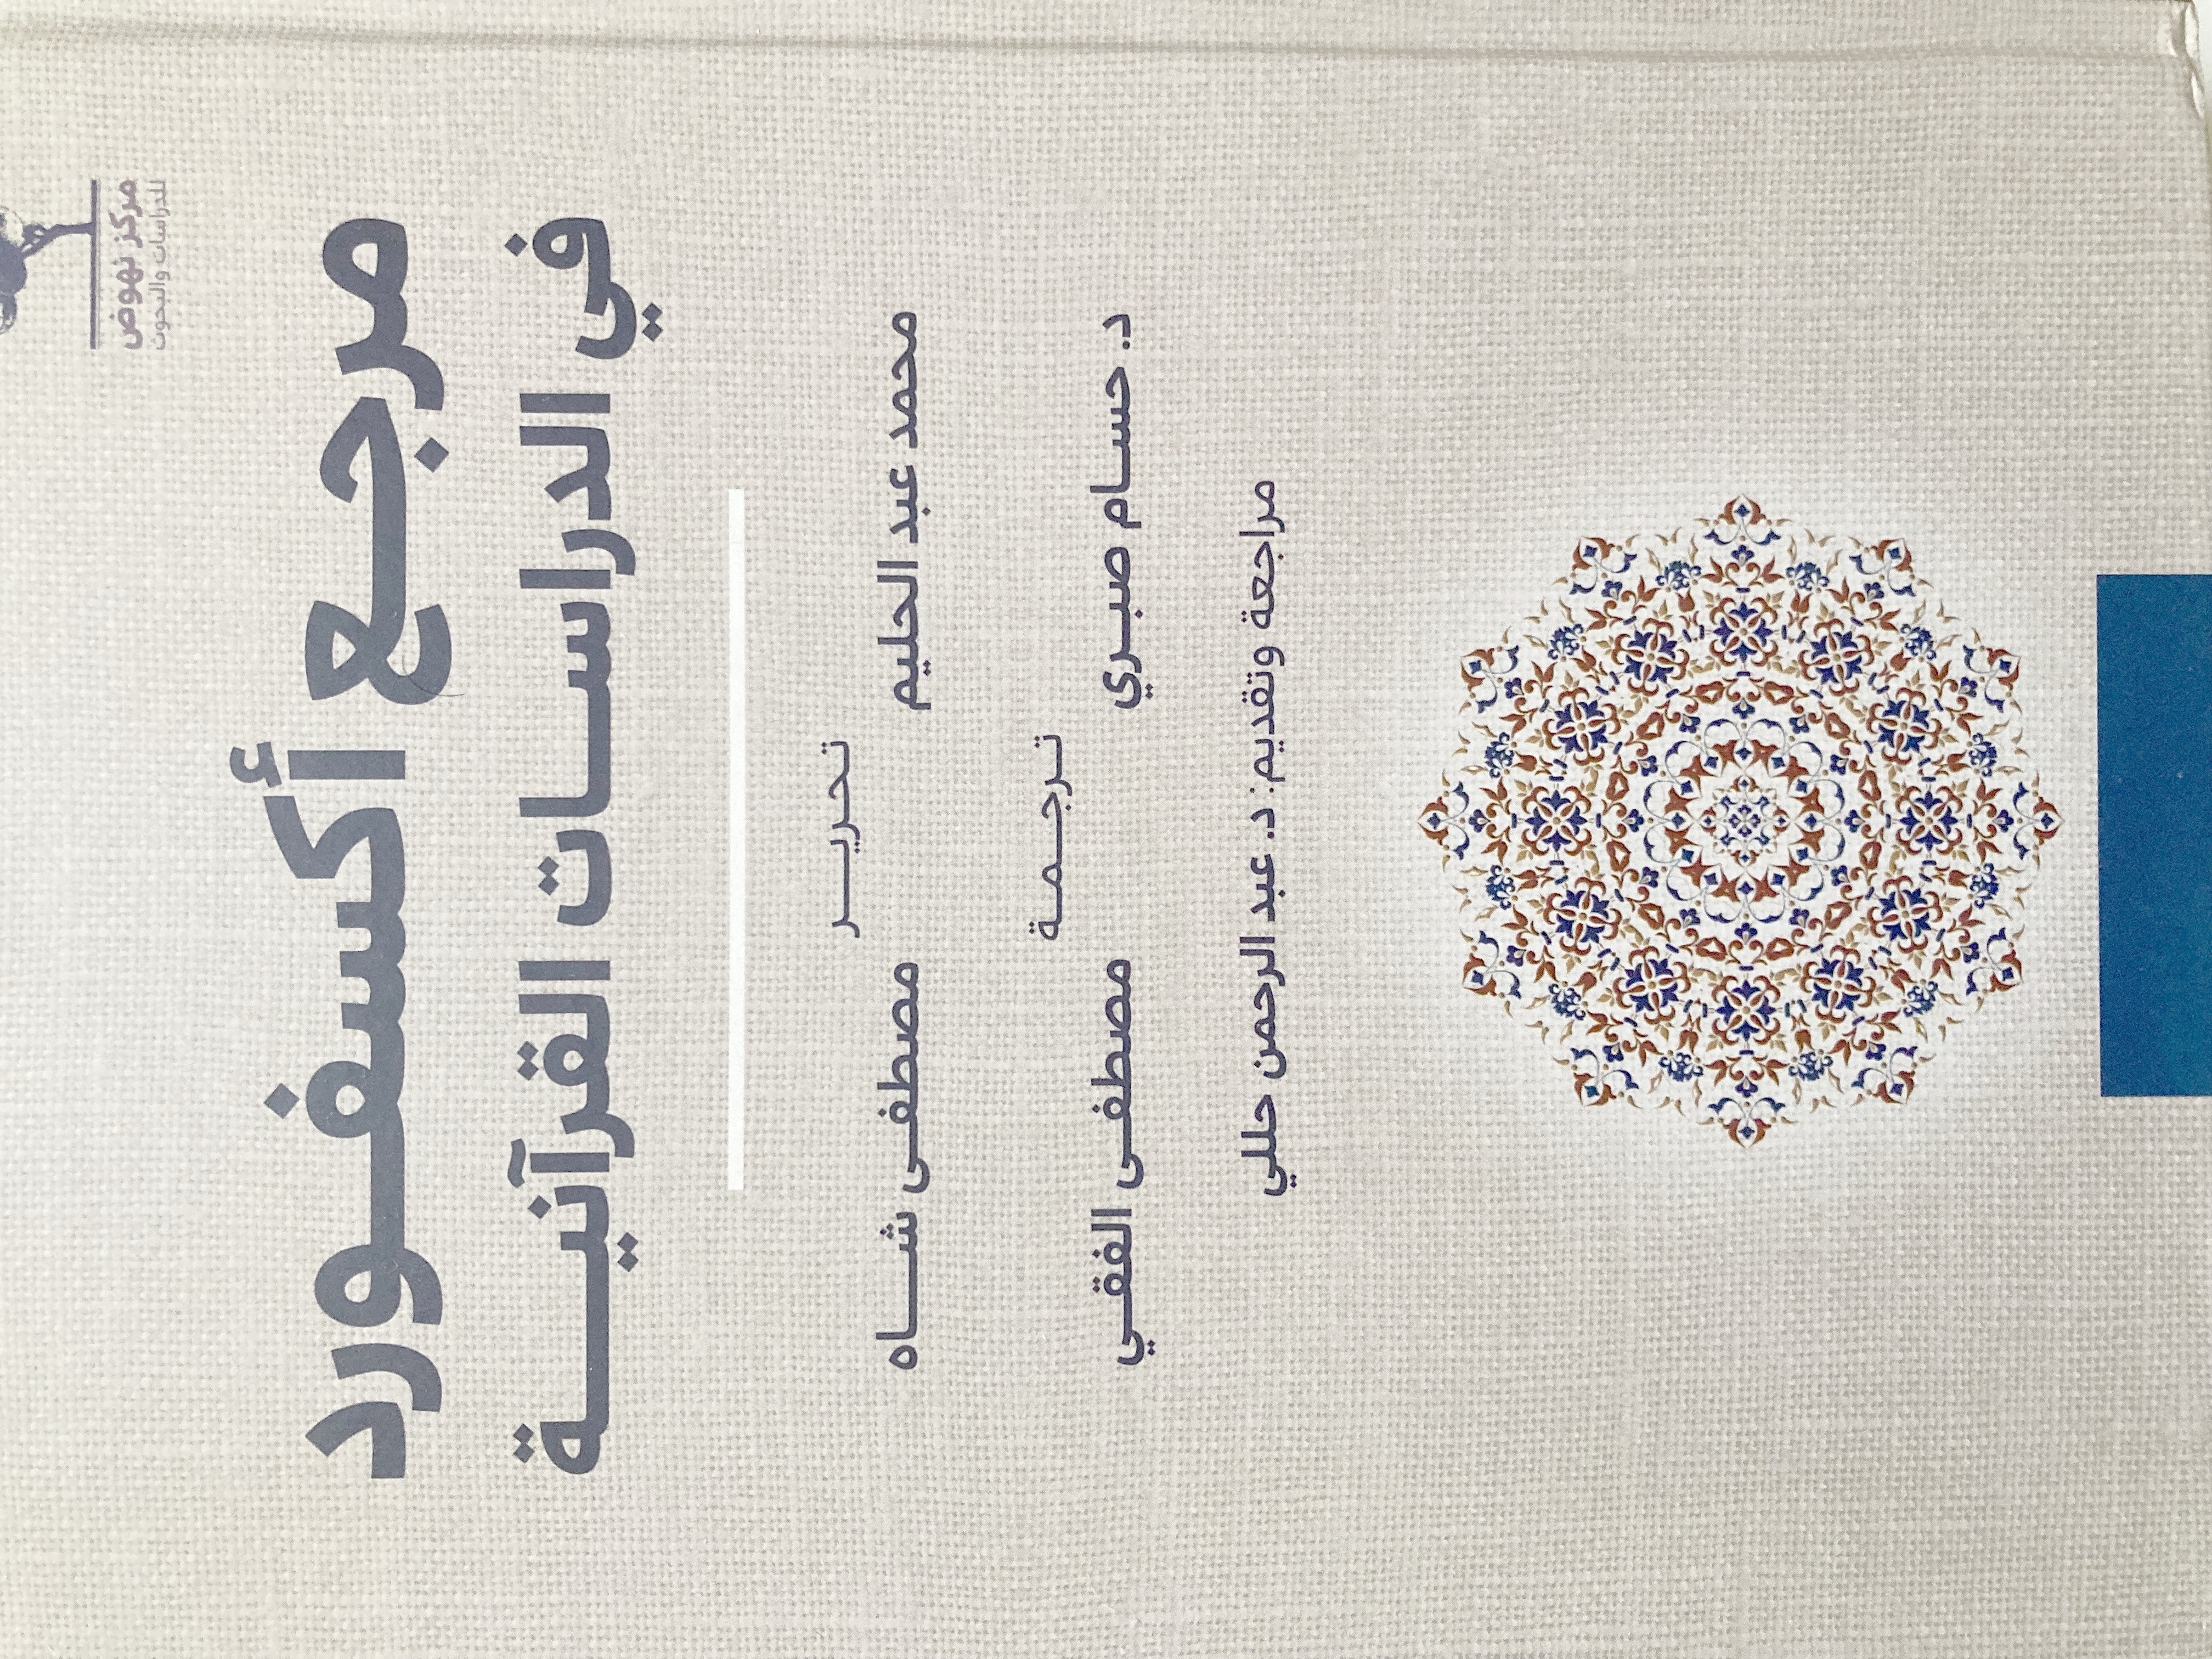 مركز نهوض
للدراسات والبحوث
مرجع أكسفورد
في الدراسات القرآنية
تحرير
محمد عبد الحليم مصطفى شاه
ترجمة
د. حسام صبري مصطفى الفقي
مراجعة وتقديم: د. عبد الرحمن حللي